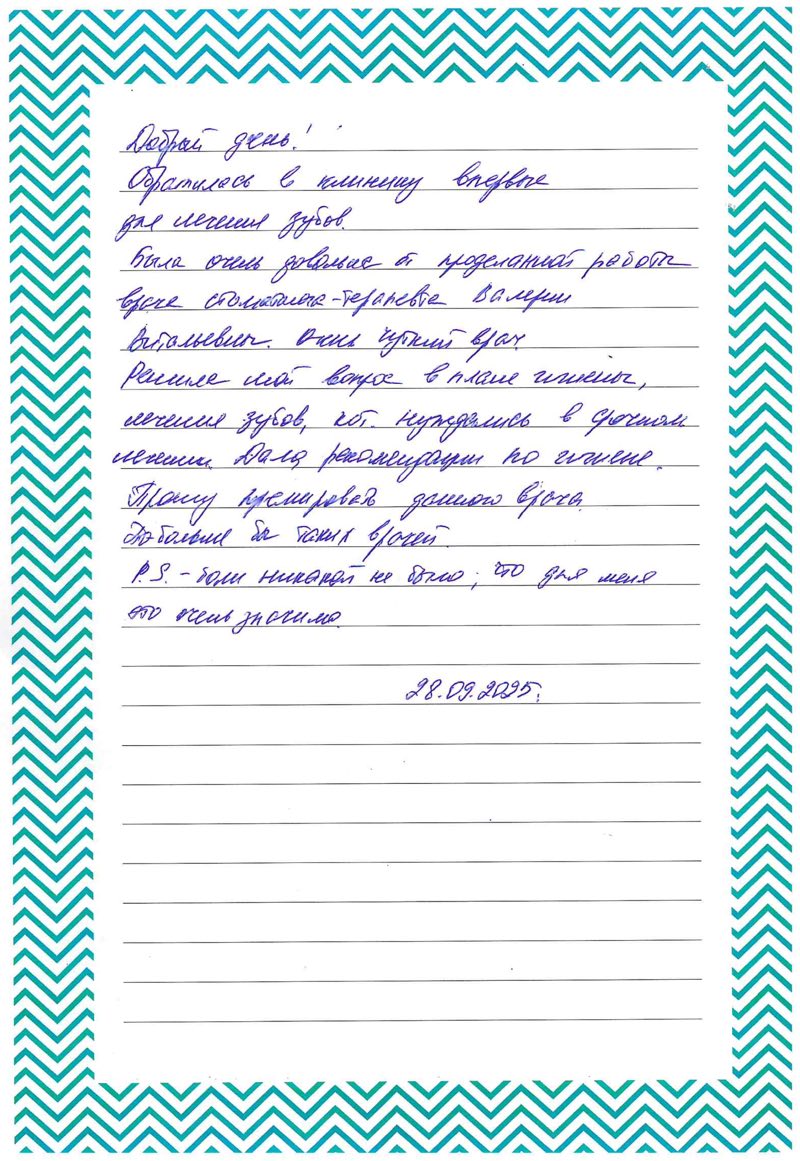 Добрый день!
Обратилась в клинику впервые
для лечения зубов.
Была очень довольна от проделанной работы
врача стоматолога-терапевта Валерии
Витальевны. Очень чуткий врач
Решила мой вопрос в плане гигиены,
лечения зубов, кот. нуждались в срочном
лечении. Дала рекомендации по гигиене.
Прошу премировать данного врача.
Побольше бы таких врачей.
P.S. - боли никакой не было, что для меня
это очень значимо.
28.09.2025.